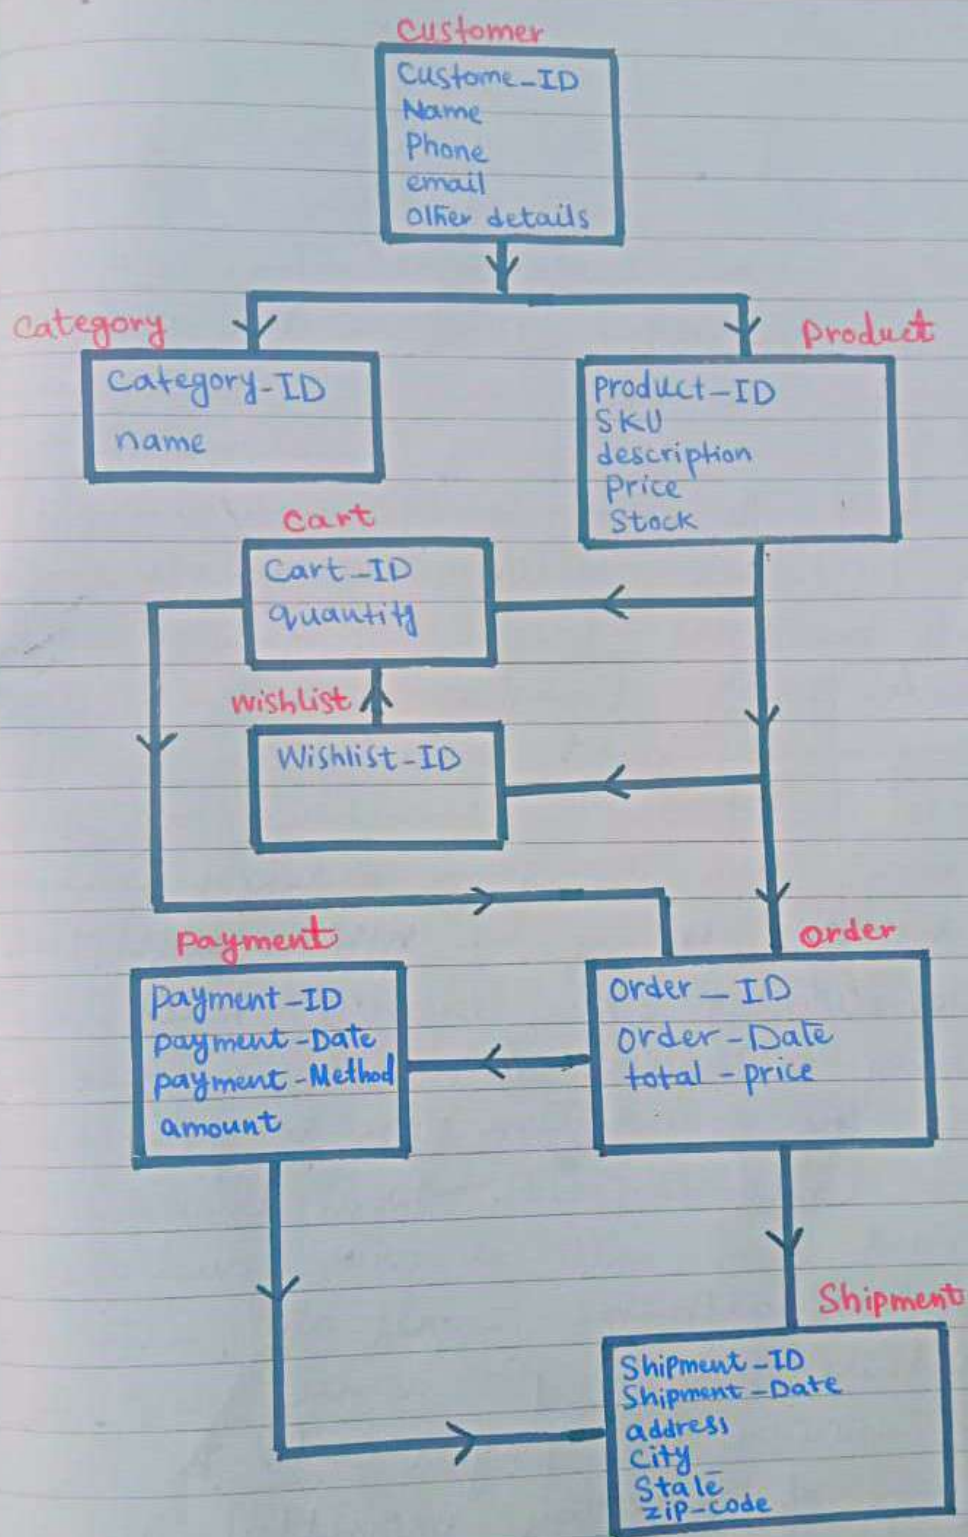 Customer
Custome-ID
Name
Phone
email
Other details
Category
Category-ID
name
Product
Product-ID
SKU
description
Price
Stock
Cart
Cart-ID
quantity
Wishlist
Wishlist-ID
Payment
Payment-ID
payment-Date
payment-Method
amount
Order
Order-ID
Order-Date
total-price
Shipment
Shipment-ID
Shipment-Date
address
City
State
zip-code